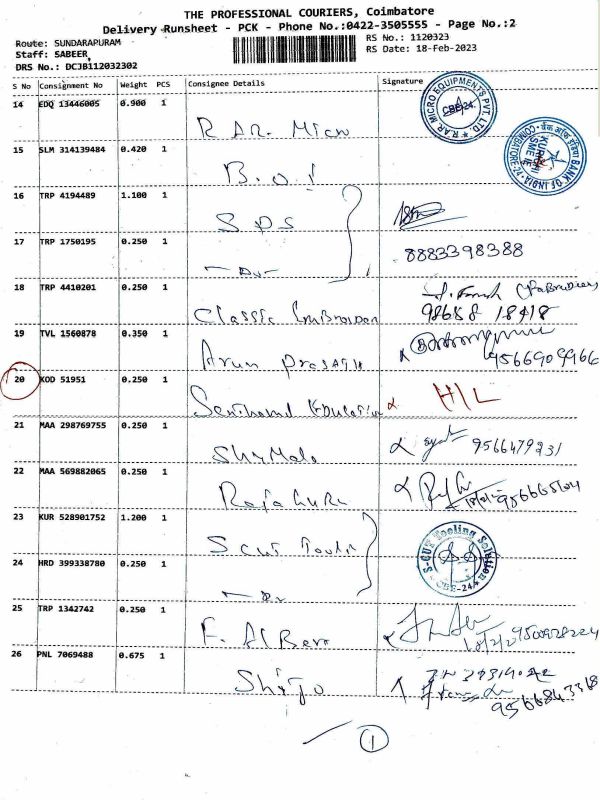 THE PROFESSIONAL COURIERS, Coimbatore
Delivery Runsheet - PCK - Phone No.:0422-3505555 - Page No.:2
Route: SUNDARAPURAM
Staff: SABEER,
DRS No.: DCJB112032302
RS No.: 1120323
RS Date: 18-Feb-2023
S No Consignment No Weight PCS Consignee Details Signature
14 EDQ 13446005 0.900 1
R AR. Micro
R.A.R MICRO EQUIPMENTS PVT. LTD. CBE-24.
15 SLM 314139484 0.420 1
B.O.I
BANK OF INDIA
16 TRP 4194489 1.100 1
S D S
17 TRP 1750195 0.250 1
8883398388
18 TRP 4410201 0.250 1
Classic
98658 18418
19 TVL 1560878 0.350 1
Arun Prasath
9566909966
20 KOD 51951 0.250 1
H/L
21 MAA 298769755 0.250 1
Shymala
9566479231
22 MAA 569882065 0.250 1
23 KUR 528901752 1.200 1
S Cut Toolin
S-CUT Tooling Solution CBE-24
24 HRD 399338780 0.250 1
25 TRP 1342742 0.250 1
F. Albert
26 PNL 7069488 0.675 1
Shijo
9566843368
1